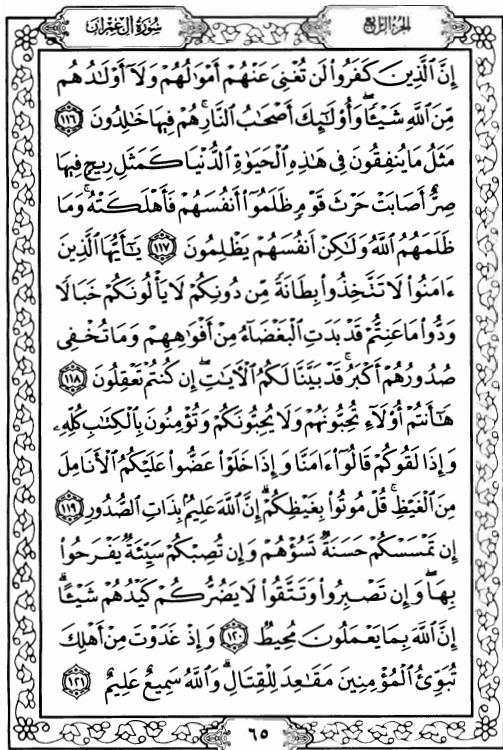 الجزء الرابع
سورة آل عمران
إِنَّ ٱلَّذِينَ كَفَرُوا۟ لَن تُغْنِىَ عَنْهُمْ أَمْوَٰلُهُمْ وَلَآ أَوْلَـٰدُهُم
مِّنَ ٱللَّهِ شَيْـًٔا ۖ وَأُو۟لَـٰٓئِكَ أَصْحَـٰبُ ٱلنَّارِ ۚ هُمْ فِيهَا خَـٰلِدُونَ ١١٦
مَثَلُ مَا يُنفِقُونَ فِى هَـٰذِهِ ٱلْحَيَوٰةِ ٱلدُّنْيَا كَمَثَلِ رِيحٍ فِيهَا
صِرٌّ أَصَابَتْ حَرْثَ قَوْمٍ ظَلَمُوٓا۟ أَنفُسَهُمْ فَأَهْلَكَتْهُ ۚ وَمَا
ظَلَمَهُمُ ٱللَّهُ وَلَـٰكِنْ أَنفُسَهُمْ يَظْلِمُونَ ١١٧ يَـٰٓأَيُّهَا ٱلَّذِينَ
ءَامَنُوا۟ لَا تَتَّخِذُوا۟ بِطَانَةً مِّن دُونِكُمْ لَا يَأْلُونَكُمْ خَبَالًا
وَدُّوا۟ مَا عَنِتُّمْ قَدْ بَدَتِ ٱلْبَغْضَآءُ مِنْ أَفْوَٰهِهِمْ وَمَا تُخْفِى
صُدُورُهُمْ أَكْبَرُ ۚ قَدْ بَيَّنَّا لَكُمُ ٱلْـَٔايَـٰتِ ۖ إِن كُنتُمْ تَعْقِلُونَ ١١٨
هَـٰٓأَنتُمْ أُو۟لَآءِ تُحِبُّونَهُمْ وَلَا يُحِبُّونَكُمْ وَتُؤْمِنُونَ بِٱلْكِتَـٰبِ كُلِّهِۦ
وَإِذَا لَقُوكُمْ قَالُوٓا۟ ءَامَنَّا وَإِذَا خَلَوْا۟ عَضُّوا۟ عَلَيْكُمُ ٱلْأَنَامِلَ
مِنَ ٱلْغَيْظِ ۚ قُلْ مُوتُوا۟ بِغَيْظِكُمْ ۗ إِنَّ ٱللَّهَ عَلِيمٌۢ بِذَاتِ ٱلصُّدُورِ ١١٩
إِن تَمْسَسْكُمْ حَسَنَةٌ تَسُؤْهُمْ وَإِن تُصِبْكُمْ سَيِّئَةٌ يَفْرَحُوا۟
بِهَا ۖ وَإِن تَصْبِرُوا۟ وَتَتَّقُوا۟ لَا يَضُرُّكُمْ كَيْدُهُمْ شَيْـًٔا ۗ
إِنَّ ٱللَّهَ بِمَا يَعْمَلُونَ مُحِيطٌ ١٢٠ وَإِذْ غَدَوْتَ مِنْ أَهْلِكَ
تُبَوِّئُ ٱلْمُؤْمِنِينَ مَقَـٰعِدَ لِلْقِتَالِ ۗ وَٱللَّهُ سَمِيعٌ عَلِيمٌ ١٢١
٦٥